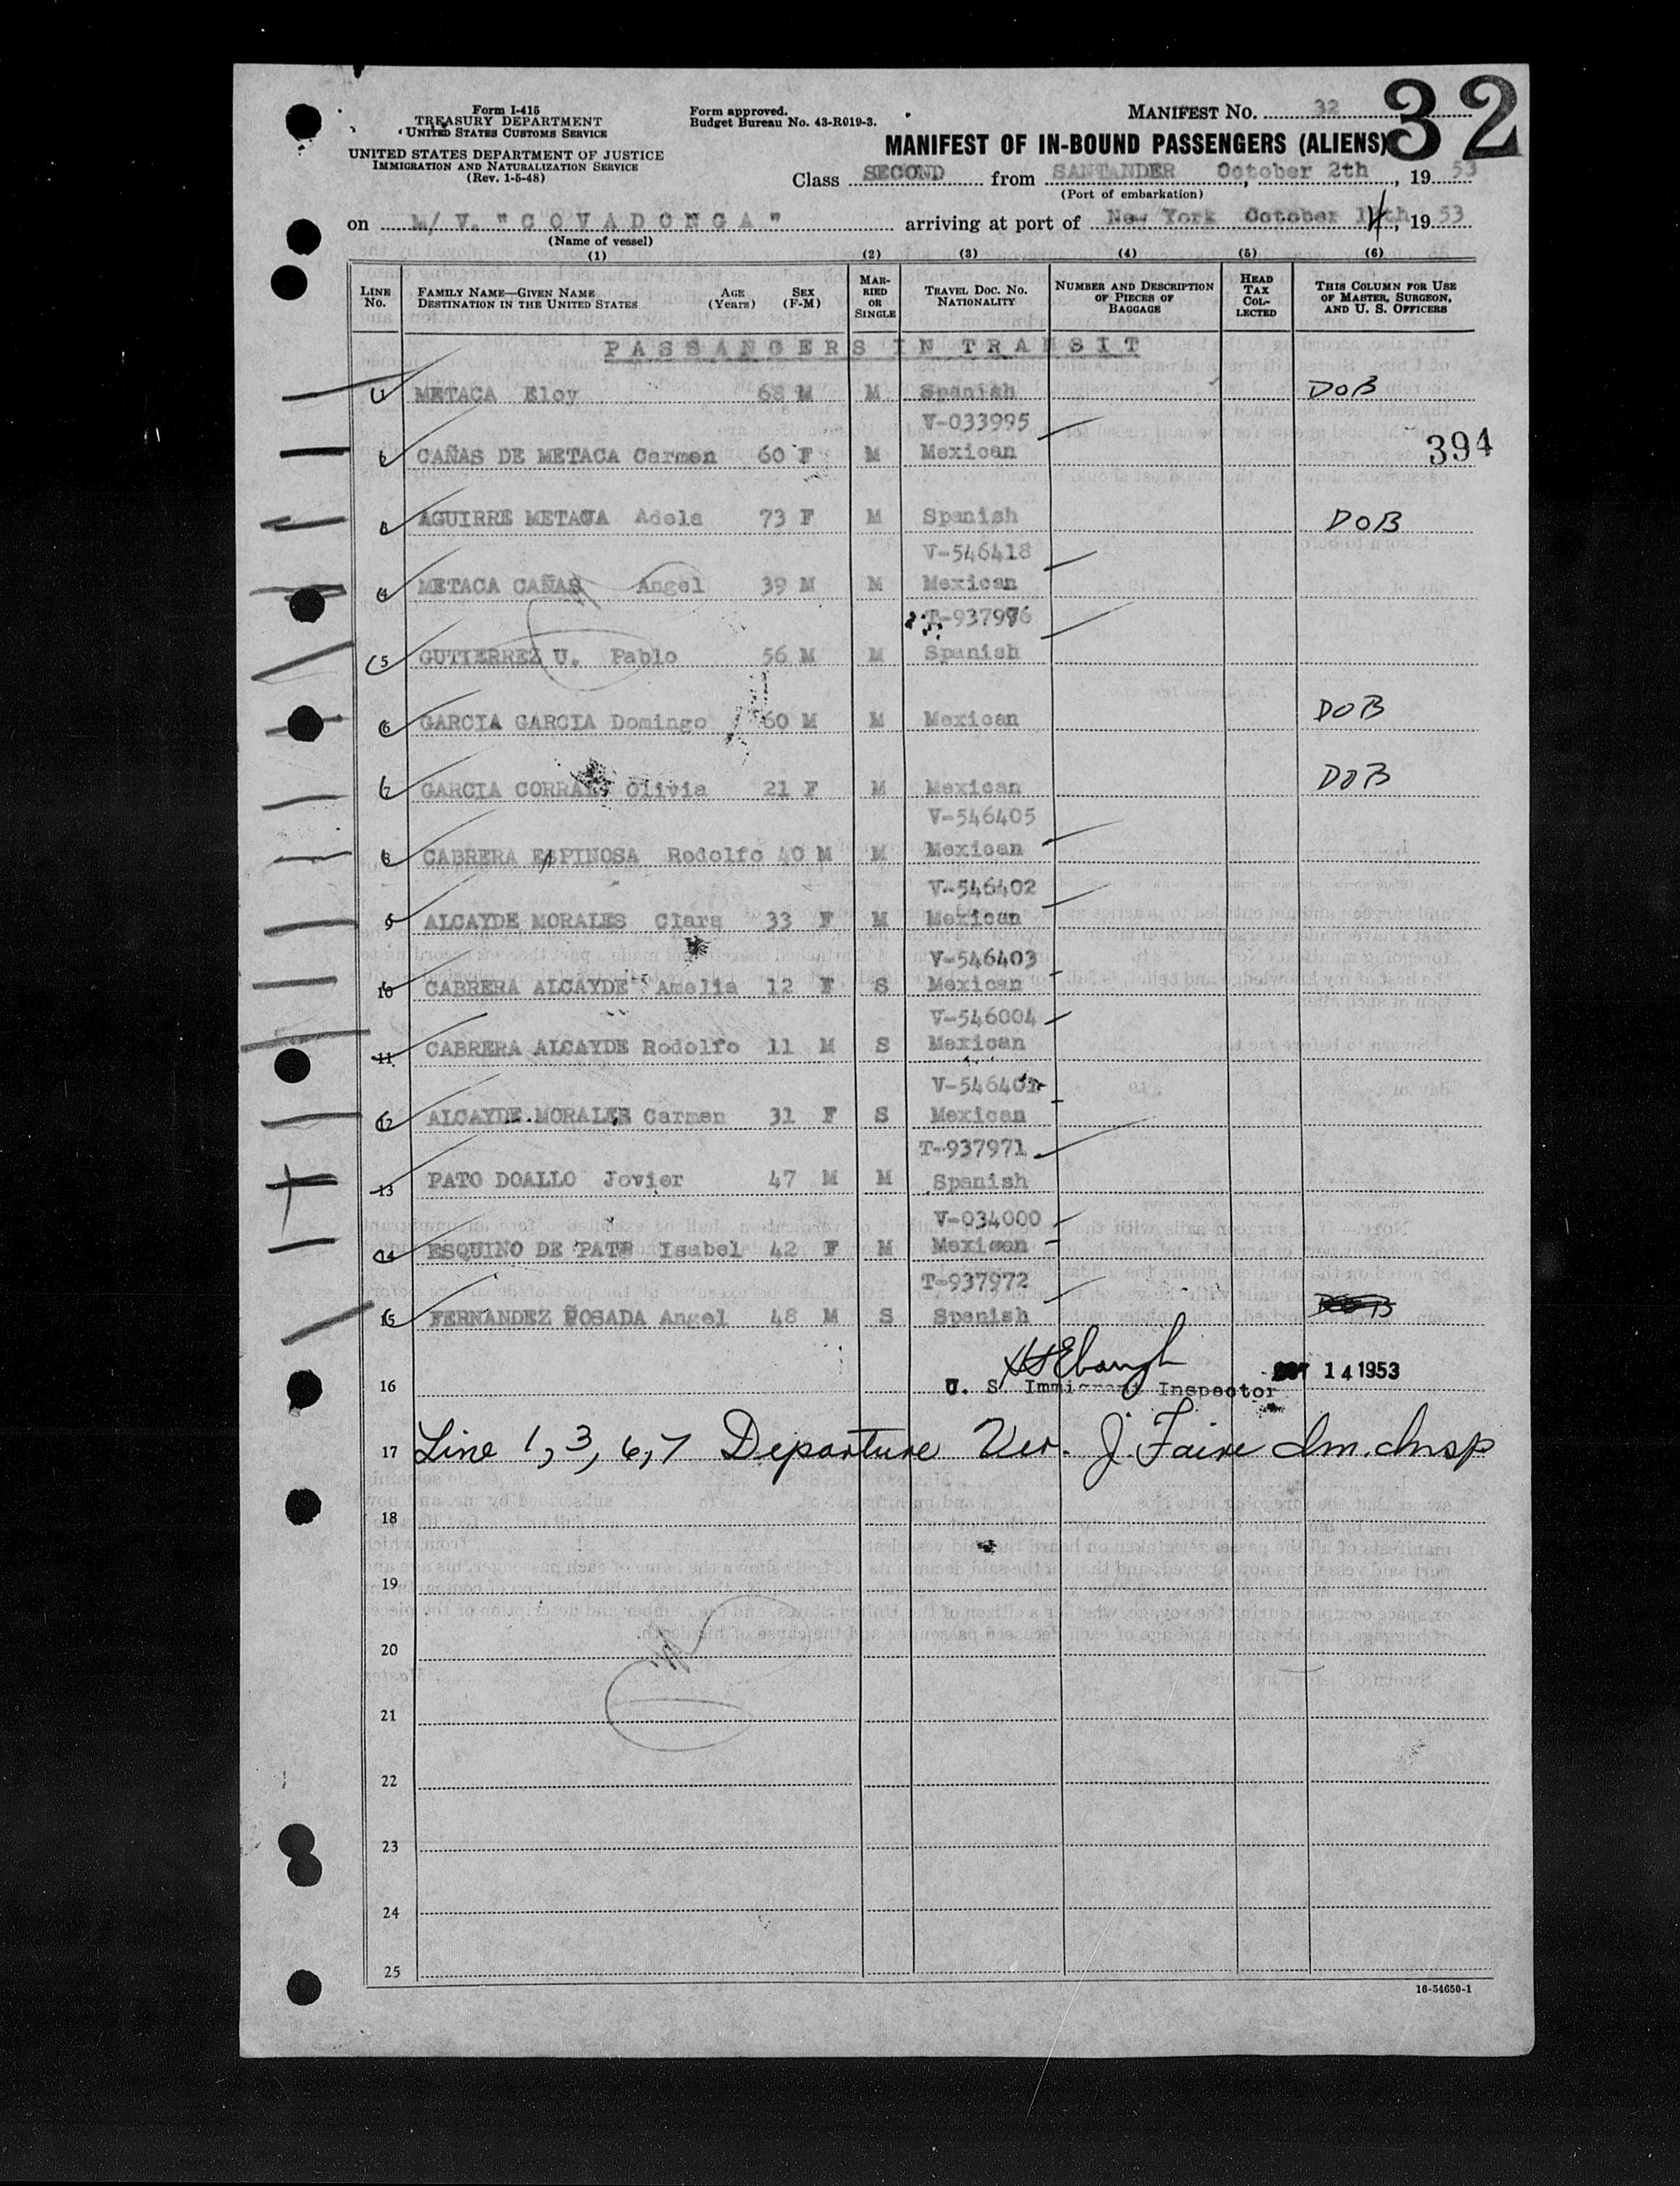 Form I-415
TREASURY DEPARTMENT
UNITED STATES CUSTOMS SERVICE
UNITED STATES DEPARTMENT OF JUSTICE
IMMIGRATION AND NATURALIZATION SERVICE
(Rev. 1-5-48)
Form approved.
Budget Bureau No. 43-R019-3.
MANIFEST No. 32
32
MANIFEST OF IN-BOUND PASSENGERS (ALIENS)
Class SECOND from SANTANDER October 2th, 1953
(Port of embarkation)
on M/V. "COVADONGA" arriving at port of New York October 14th, 1953
(Name of vessel)
(1) (2) (3) (4) (5) (6)
LINE No. FAMILY NAME—GIVEN NAME DESTINATION IN THE UNITED STATES AGE (Years) SEX (F-M) MARRIED OR SINGLE TRAVEL DOC. No. NATIONALITY NUMBER AND DESCRIPTION OF PIECES OF BAGGAGE HEAD TAX COLLECTED THIS COLUMN FOR USE OF MASTER, SURGEON, AND U. S. OFFICERS
PASSANGERS IN TRANSIT
1 METACA Eloy 68 M M Spanish DOB
V-033995
2 CAÑAS DE METACA Carmen 60 F M Mexican 394
3 AGUIRRE METACA Adela 73 F M Spanish DOB
V-546418
4 METACA CAÑAS Angel 39 M M Mexican
T-937976
5 GUTIERREZ U. Pablo 56 M M Spanish
6 GARCIA GARCIA Domingo 60 M M Mexican DOB
7 GARCIA CORRAL Olivia 21 F M Mexican DOB
V-546405
8 CABRERA ESPINOSA Rodolfo 40 M M Mexican
V-546402
9 ALCAYDE MORALES Clara 33 F M Mexican
V-546403
10 CABRERA ALCAYDE Amelia 12 F S Mexican
V-546004
11 CABRERA ALCAYDE Rodolfo 11 M S Mexican
V-546401
12 ALCAYDE MORALES Carmen 31 F S Mexican
T-937971
13 PATO DOALLO Jovier 47 M M Spanish
V-034000
14 ESQUINO DE PATO Isabel 42 F M Mexican
T-937972
15 FERNANDEZ POSADA Angel 48 M S Spanish DOB
HSEbaugh
16 U. S. Immigrant Inspector OCT 14 1953
17 Line 1, 3, 6, 7 Departure Ver. J. Faire Im. Insp
18
19
20
21
22
23
24
25
16-54650-1